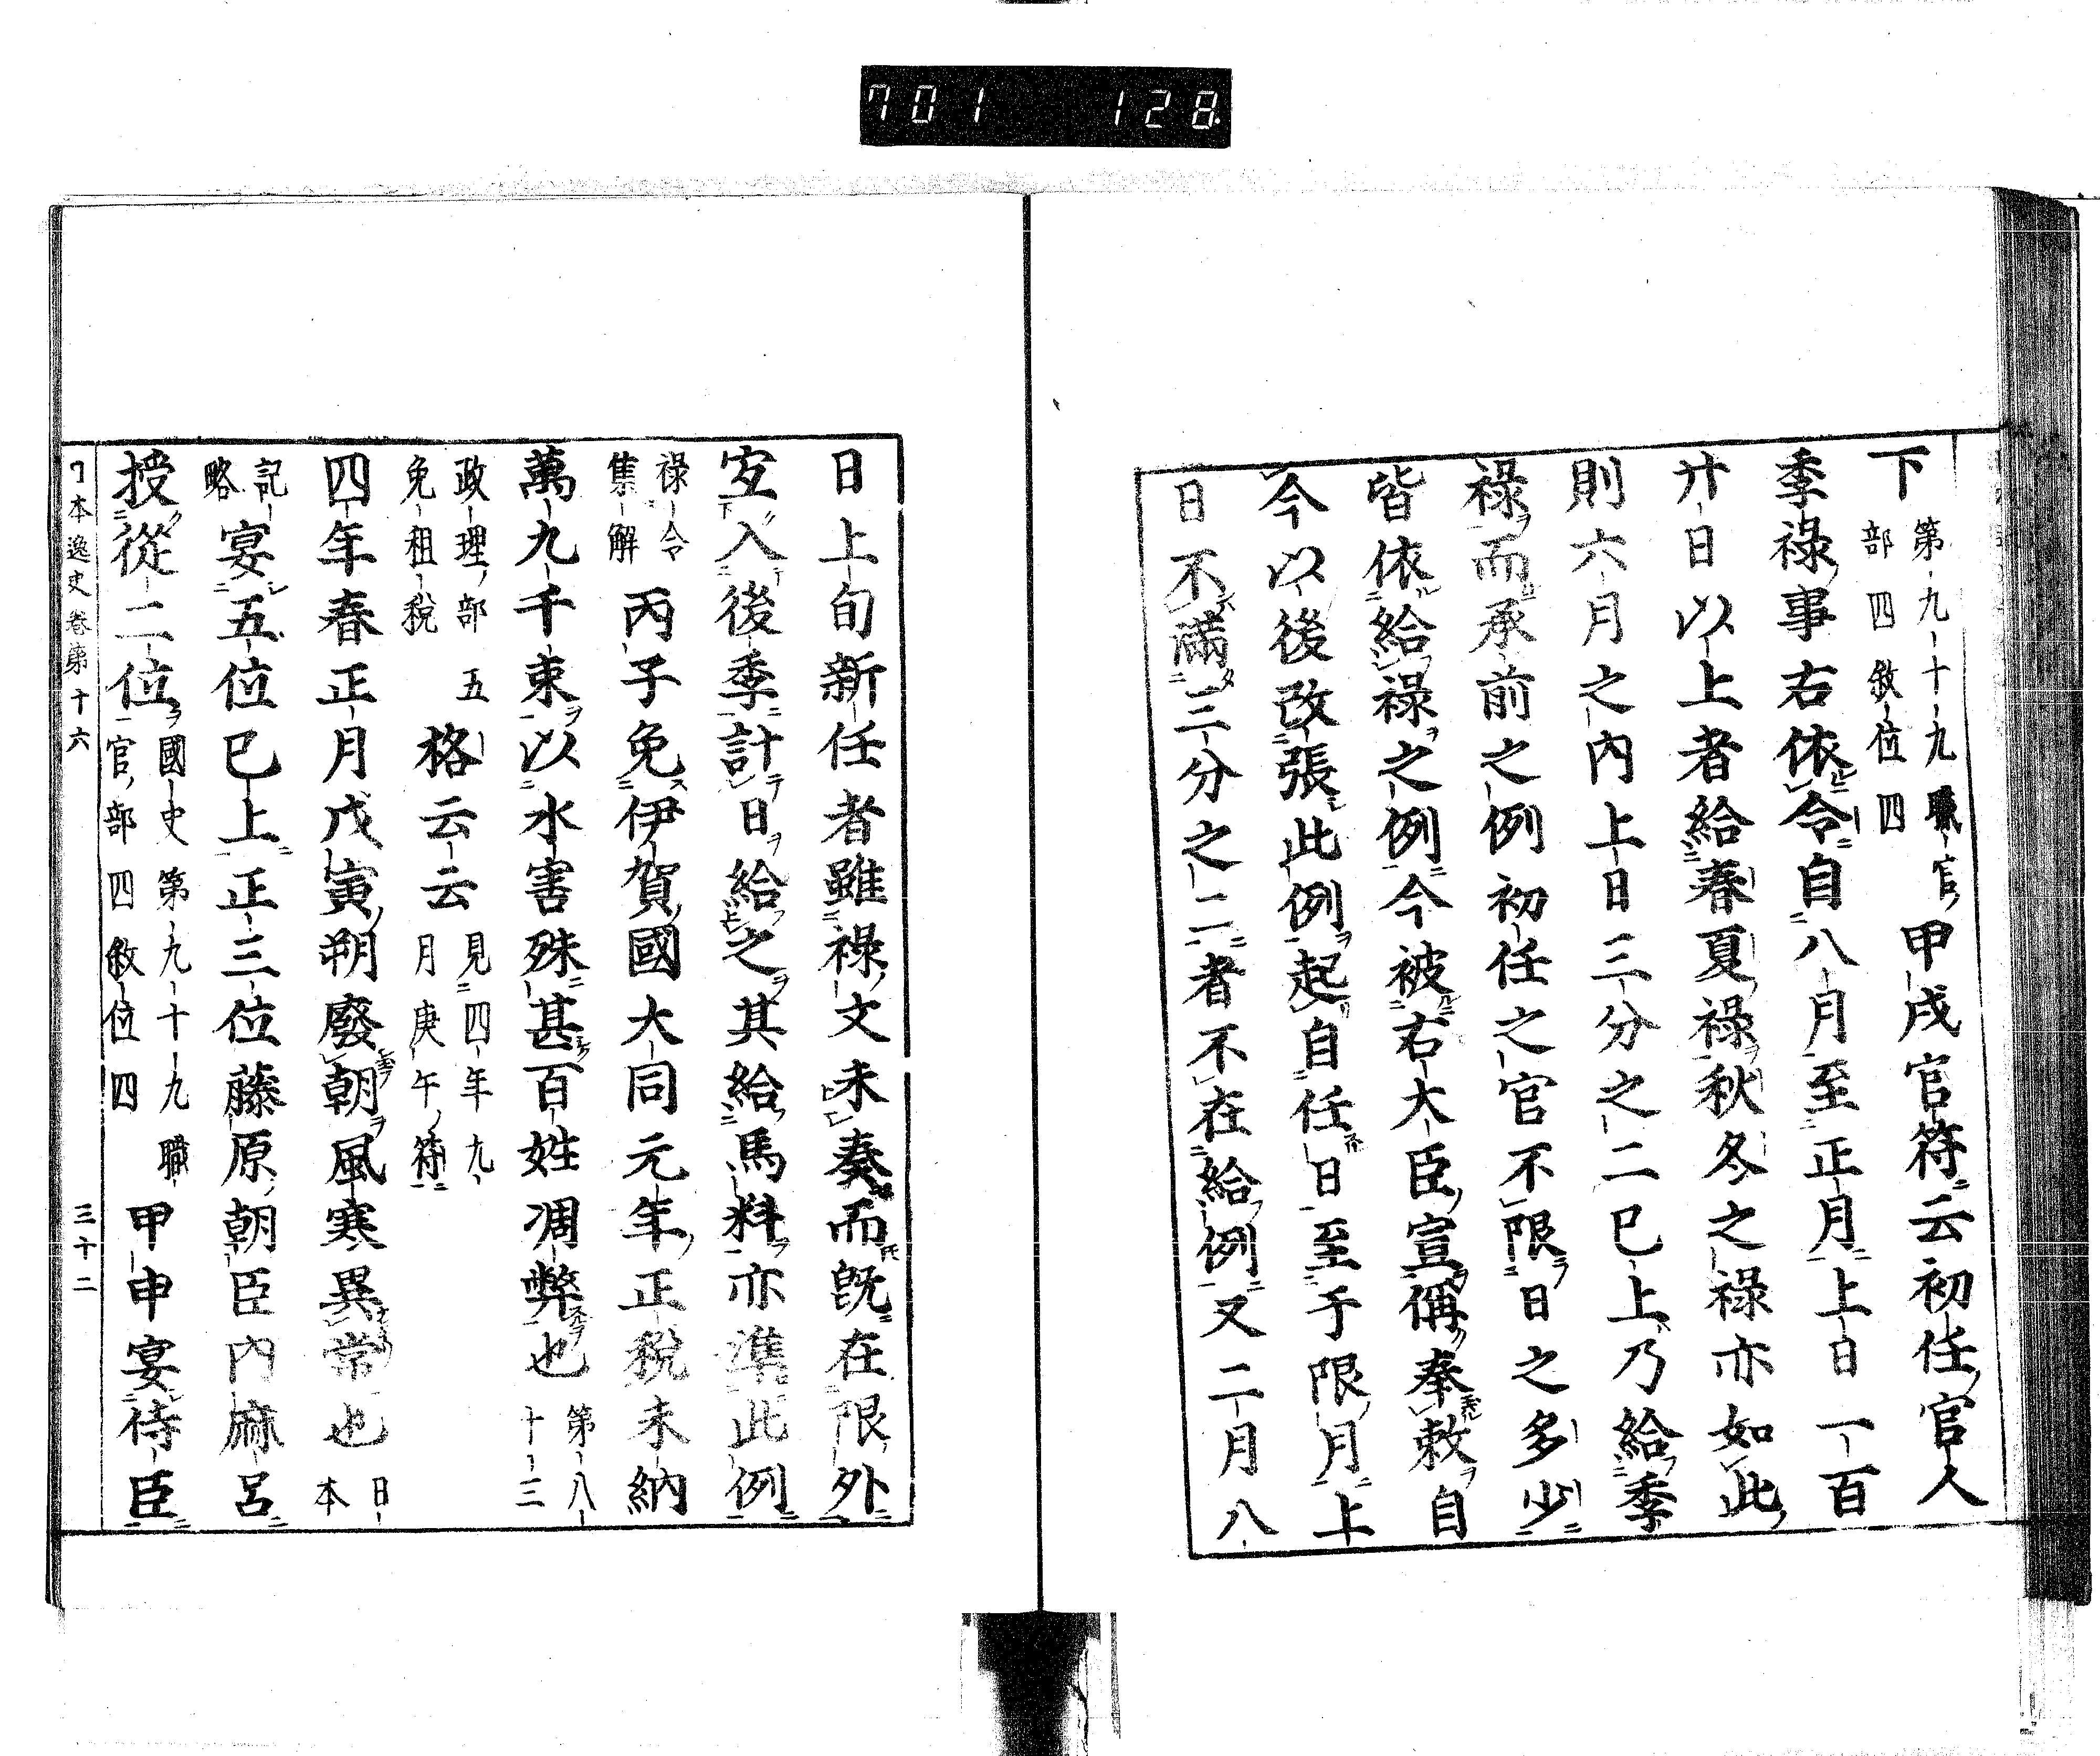 701 128
下 第九十九職官部四敘位四 甲戌官符云初任官人
季祿事右依令自八月至正月上日一百
廾日以上者給春夏祿秋冬之祿亦如此
則六月之內上日三分之二已上乃給季
祿而承前之例初任之官不限日之多少
皆依給祿之例今被右大臣宣偁奉敕自
今以後改張此例起自任日至于限月上
日不滿三分之二者不在給例又二月八
日上旬新任者雖祿文未奏而既在限外
宜入後季計日給之其給馬料亦準此例
祿令集解 丙子免伊賀國大同元年正稅未納
萬九千束以水害殊甚百姓凋弊也 第八十三
政理部五免租稅 格云云 見四年九月庚午符
四年春正月戊寅朔廢朝風寒異常也 日本
記略 宴五位已上正三位藤原朝臣內麻呂
授從二位 國史第九十九職官部四敘位四 甲申宴侍臣
日本逸史卷第十六 三十二